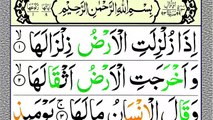 بِسْمِ اللهِ الرَّحْمٰنِ الرَّحِيْمِ
اِذَا زُلْزِلَتِ الْاَرْضُ زِلْزَالَهَا
وَاَخْرَجَتِ الْاَرْضُ اَثْقَالَهَا
وَقَالَ الْاِنْسَانُ مَالَهَا ۳ يَوْمَئِذٍ